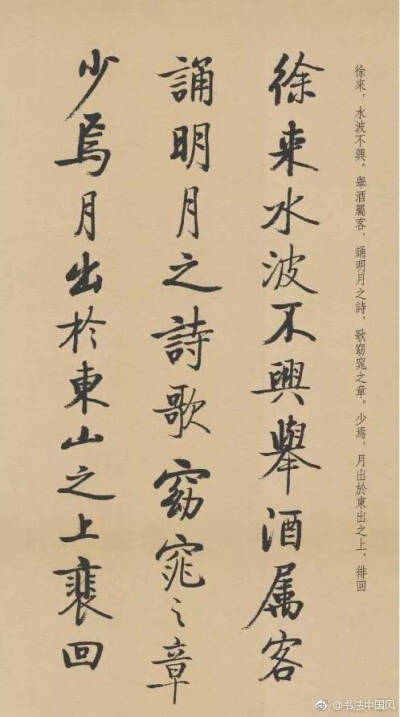 徐來，水波不興。舉酒屬客，誦明月之詩，歌窈窕之章。少焉，月出於東出之上，徘回
徐来水波不興舉酒属客
誦明月之詩歌窈窕之章
少焉月出於東山之上裴回
@书法中国风